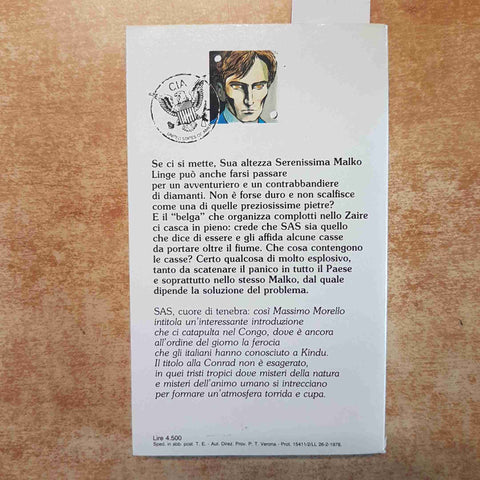 CIA
UNITED STATES OF
Se ci si mette, Sua altezza Serenissima Malko
Linge può anche farsi passare
per un avventuriero e un contrabbandiere
di diamanti. Non è forse duro e non scalfisce
come una di quelle preziosissime pietre?
E il “belga” che organizza complotti nello Zaire
ci casca in pieno: crede che SAS sia quello
che dice di essere e gli affida alcune casse
da portare oltre il fiume. Che cosa contengono
le casse? Certo qualcosa di molto esplosivo,
tanto da scatenare il panico in tutto il Paese
e soprattutto nello stesso Malko, dal quale
dipende la soluzione del problema.
SAS, cuore di tenebra: così Massimo Morello
intitola un'interessante introduzione
che ci catapulta nel Congo, dove è ancora
all'ordine del giorno la ferocia
che gli italiani hanno conosciuto a Kindu.
Il titolo alla Conrad non è esagerato,
in quei tristi tropici dove misteri della natura
e misteri dell'animo umano si intrecciano
per formare un'atmosfera torrida e cupa.
Lire 4.500
Sped. in abb. post. T. E. - Aut. Direz. Prov. P. T. Verona. - Prot. 15411/2/LL 26-2-1976.